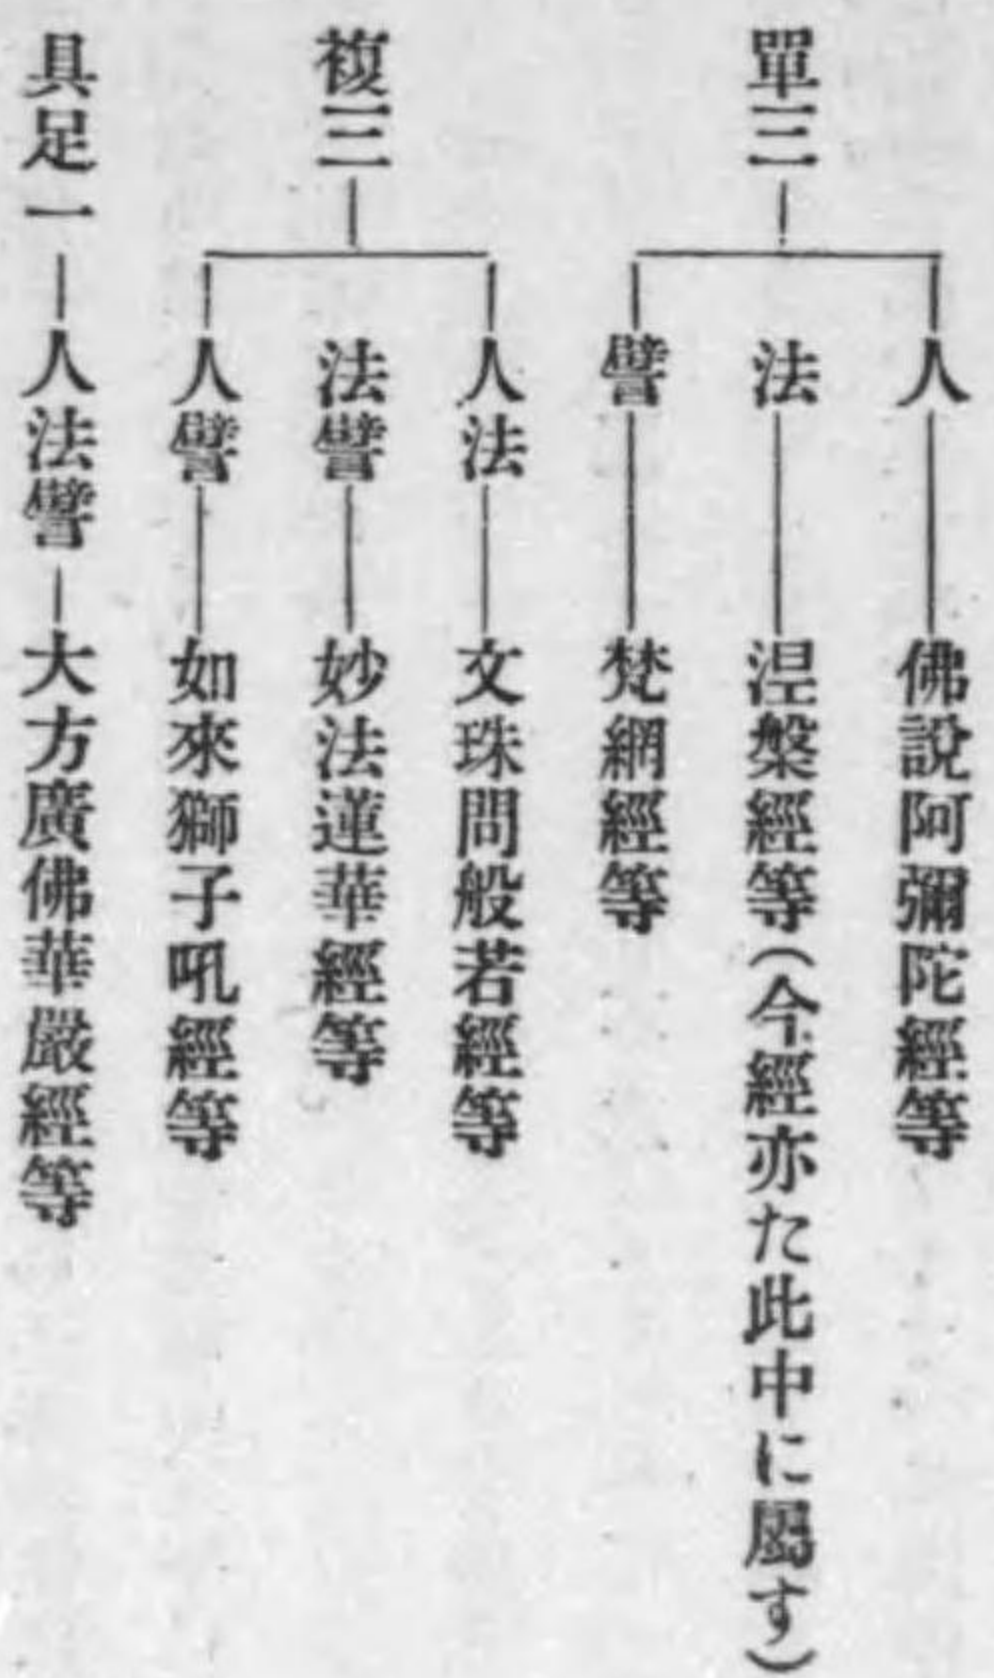 單三
人
佛說阿彌陀經等
法
涅槃經等(今經亦た此中に屬す)
譬
梵網經等
複三
人法
文珠問般若經等
法譬
妙法蓮華經等
人譬
如來獅子吼經等
具足一
人法譬
大方廣佛華嚴經等